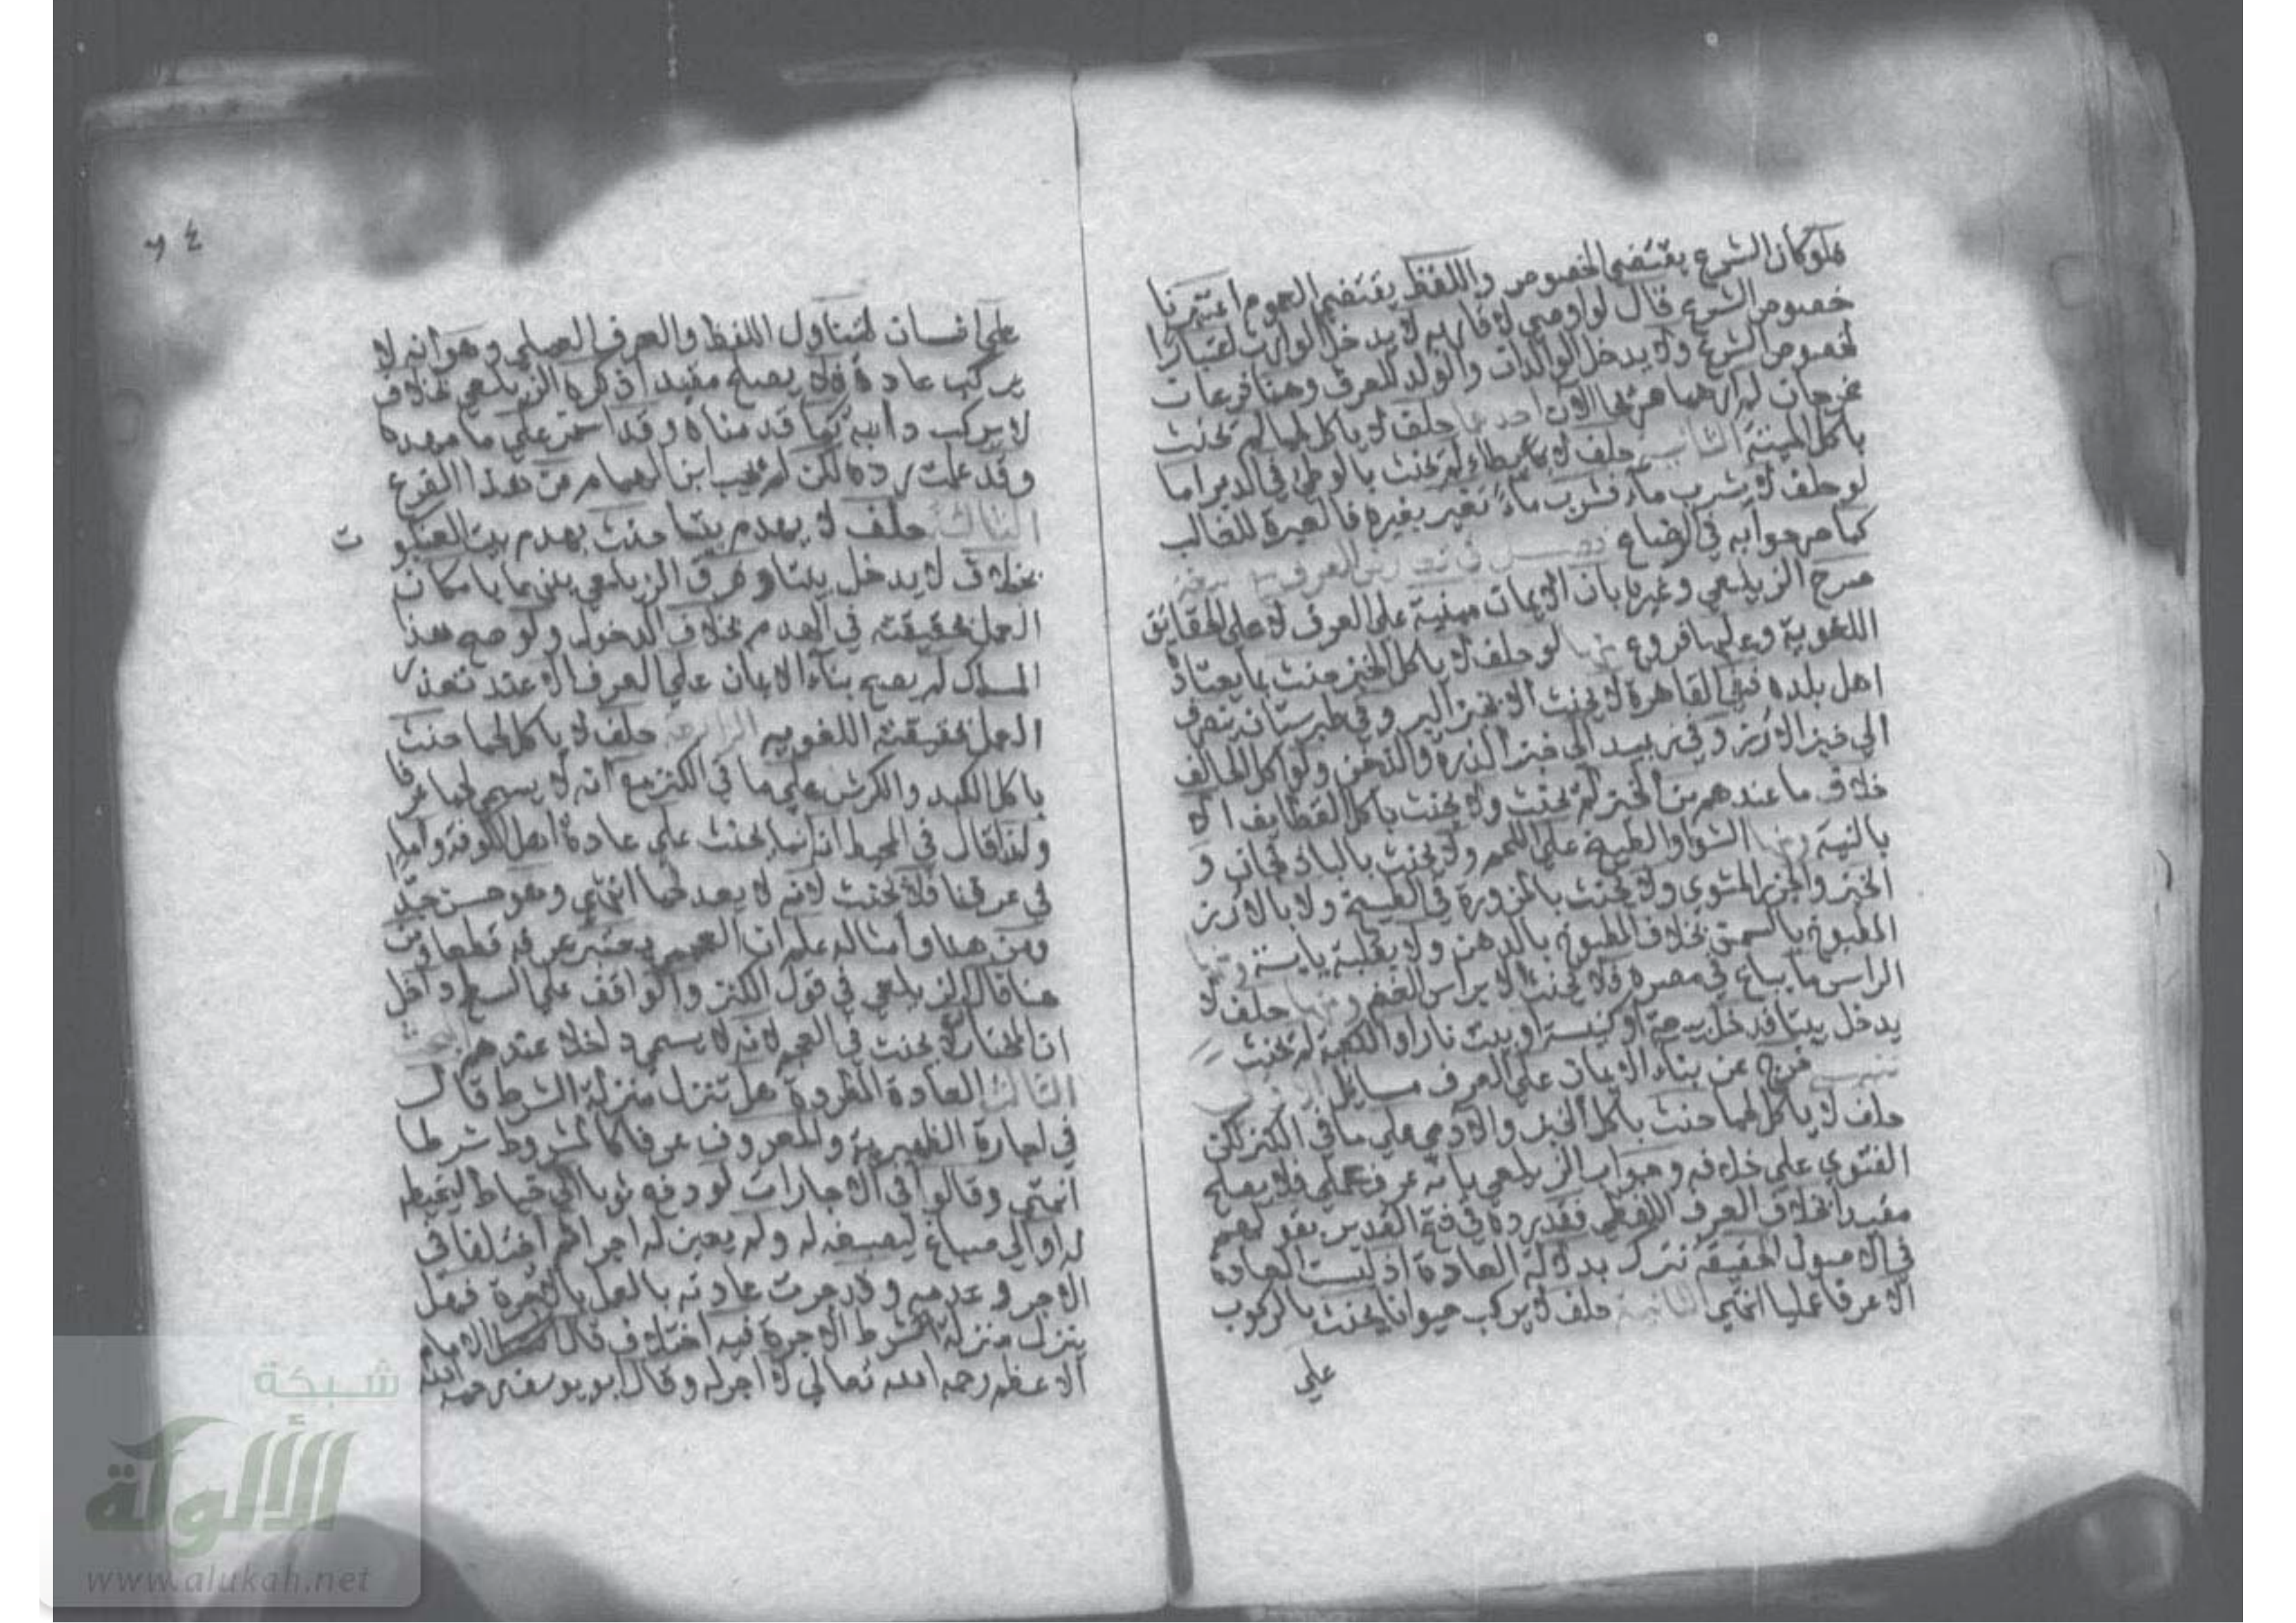 فلو كان الشرع يقتضي الخصوص واللفظ يقتضي العموم اعتبرنا
خصوص الشرع قال لو اوصي لاقاربه لا يدخل الوارث اعتبارا
لخصوص الشرع ولا يدخل الوالدان والولد للعرف وهنا فرعان
مخرجان لم ارهما صريحا الآن احدهما حلف لا ياكل لحما لم يحنث
باكل الميتة الثاني حلف لا يطاء لم يحنث بالوطئ في الدبر اما
لو حلف لا يشرب ماء فشرب ماء تغير بغيره فالعبرة للغالب
كما صرحوا به في الرضاع فصل في تعارض العرف مع اللغة
صرح الزيلعي وغيره بان الايمان مبنية على العرف لا على الحقائق
اللغوية وعليها فروع منها لو حلف لا ياكل الخبز حنث بما يعتاده
اهل بلده ففي القاهرة لا يحنث الا بخبز البر وفي طبرستان ينصرف
الي خبز الارز وفي زبيد الي خبز الذرة والدخن ولو اكل الحالف
خلاف ما عندهم من الخبز لم يحنث ولا يحنث باكل القطايف الا
بالنية ومنها الشوا والطبيخ علي اللحم ولا يحنث بالباذنجان و
الجزر المشوي ولا يحنث بالمزورة في الطبيخ ولا بالارز
المطبوخ بالسمن بخلاف المطبوخ بالدهن ولا بقلية يابسة ومنها
الراس ما يباع في مصره فلا يحنث الا براس الغنم ومنها حلف لا
يدخل بيتا فدخل بيعة او كنيسة او بيت نار او الكعبة لم يحنث
تنبيه خرج عن بناء الايمان علي العرف مسايل الاولى
حلف لا ياكل لحما حنث باكل الخنزير والادمي علي ما في الكنز لكن
الفتوي علي خلافه وجواب الزيلعي بانه عرف عملي فلا يصلح
مقيدا بخلاف العرف اللفظي فقد رده في فتح القدير بقولهم
في الاصول الحقيقة تترك بدلالة العادة اذ ليست العادة
الا عرفا عمليا انتهي الثانية حلف لا يركب حيوانا يحنث بالركوب
علي
٦٤
علي انسان لتناول اللفظ والعرف العملي وهو انه لا
يركب عادة فلا يصلح مقيدا ذكره الزيلعي بخلاف
لا يركب دابة كما قدمناه وقد استمر علي ما مهده
وقد علمت رده لكن لم يجب ابن الهمام عن هذا الفرع
الثالثة حلف لا يهدم بيتا حنث بهدم بيت العنكبو
ت
بخلاف لا يدخل بيتا وفرق الزيلعي بينهما بامكان
العمل بحقيقته في الهدم بخلاف الدخول ولو صح هذا
المسلك لم يصح بناء الايمان علي العرف الا عند تعذر
العمل بحقيقته اللغويه الرابعة حلف لا ياكل لحما حنث
باكل الكبد والكرش علي ما في الكنز مع انه لا يسمي لحما عرفا
ولذا قال في المحيط انه انما يحنث علي عادة اهل الكوفة واما
في عرفنا فلا يحنث لانه لا يعد لحما انتهي وهو حسن جدا
ومن هنا وامثاله علم ان العجمي يعتبر عرفه قطعا ومن
هنا قال الزيلعي في قول الكنز والواقف علي السطح داخل
ان المختار لا يحنث في العجم لانه لا يسمي داخلا عندهم المبحث
الثالث العادة المطردة هل تنزل منزلة الشرط قال
في اجارة الظهيرية والمعروف عرفا كالمشروط شرطا
انتهي وقالوا في الاجارات لو دفع ثوبا الي خياط ليخيطه
له او الي صباغ ليصبغه له ولم يعين له اجرا ثم اختلفا في
الاجر وعدمه وقد جرت عادته بالعمل بالاجرة فهل
ينزل منزلة شرط الاجرة فيه اختلاف قال الامام
الاعظم رحمه الله تعالي لا اجر له وقال ابو يوسف رحمه الله
شبكة
الألوكة
www.alukah.net